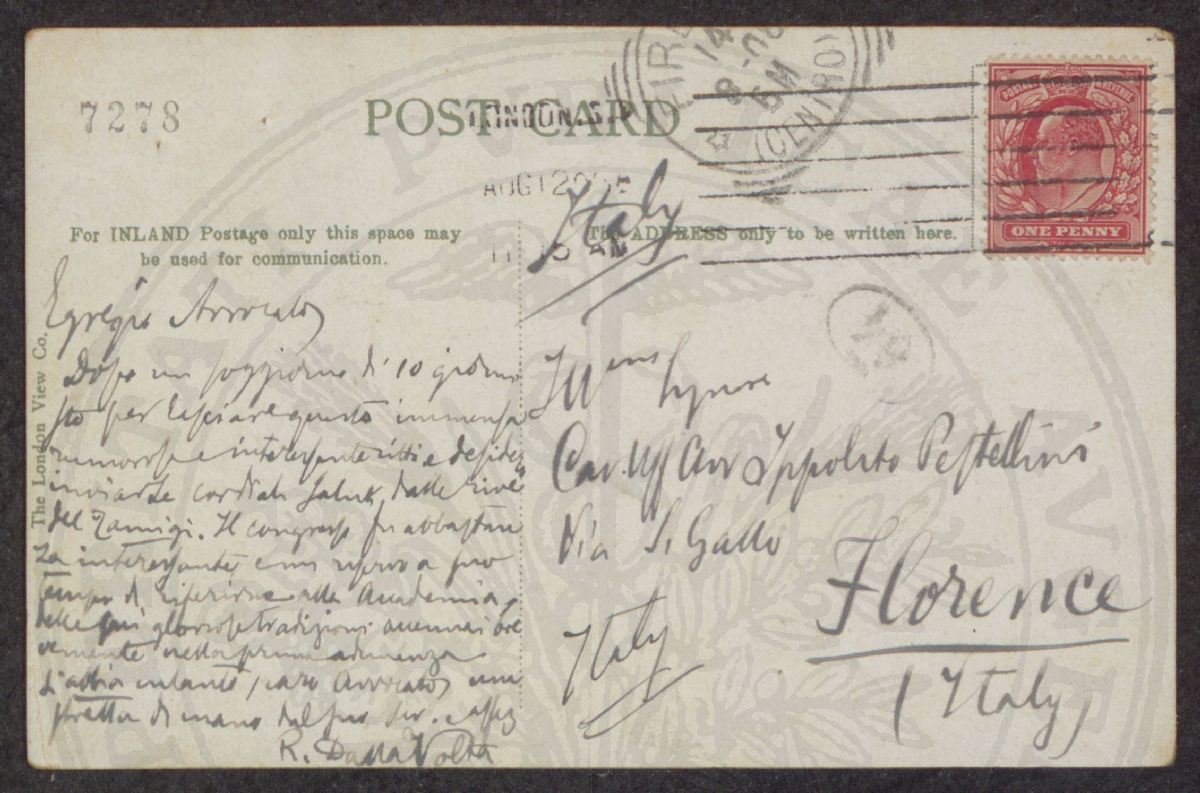 7278
POST CARD
LONDON. S.
AUG 12
11 15 AM
FIRE
14
8-08
5 M
(CENTRO)
POSTAGE REVENUE
ONE PENNY
Italy
For INLAND Postage only this space may
be used for communication.
The ADDRESS only to be written here.
The London View Co.
Egregio Avvocato
Dopo un soggiorno di 10 giorni
sto per lasciare questa immensa
rumorosa e interessante città e desidero
inviarle cordiali saluti dalle rive
del Tamigi. Il congresso fu abbastan
za interessante e mi riservo a suo
tempo di riferirne alla Accademia,
delle più gloriose tradizioni
nella prima adunanza
S'abbia intanto, caro Avvocato una
stretta di mano dal suo dev. e aff
R. Dalla Volta
Ill mo Signore
Cav. Uff Avv Ippolito Pestellini
Via S. Gallo
Florence
Italy
(Italy)